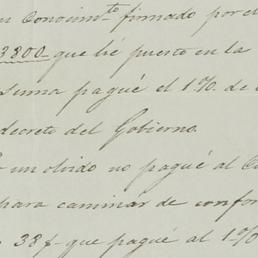 Conocim^to firmado por el
3800- que hé puesto en la
suma pagué el 1%. de
decreto del Gobierno.
un olvido no pagué al
para caminar de confor
38f que pagué al 1%